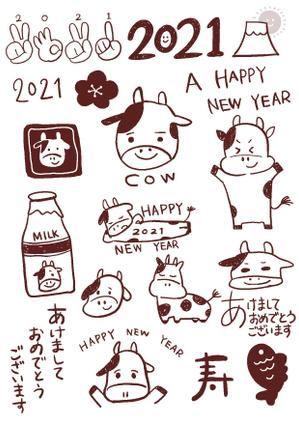 2 0 2 1
2021
2021
A HAPPY
NEW YEAR
COW
MILK
HAPPY
2021
NEW YEAR
あけまして
おめでとう
ございます
あけまして
おめでとう
ございます
HAPPY NEW YEAR
寿